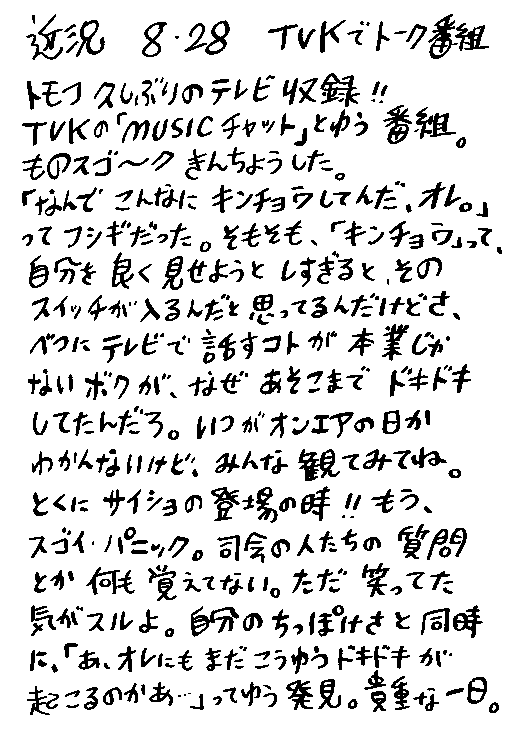 近況 8・28 TVKでトーク番組
トモフ久しぶりのテレビ収録!!
TVKの「MUSICチャット」とゆう番組。
ものスゴ〜ク きんちょうした。
「なんで こんなに キンチョウしてんだ、オレ。」
ってフシギだった。そもそも、「キンチョウ」って、
自分を良く見せようとしすぎると、その
スイッチが入るんだと思ってるんだけどさ、
べつにテレビで話すコトが本業じゃ
ないボクが、なぜ あそこまで ドキドキ
してたんだろ。いつがオンエアの日か
わかんないけど、みんな観てみてね。
とくに サイショの登場の時!! もう、
スゴイ・パニック。司会の人たちの質問
とか何も覚えてない。ただ笑ってた
気がスルよ。自分のちっぽけさと同時
に、「あ、オレにもまだこうゆうドキドキが
起こるのかぁ…」ってゆう発見。貴重な一日。